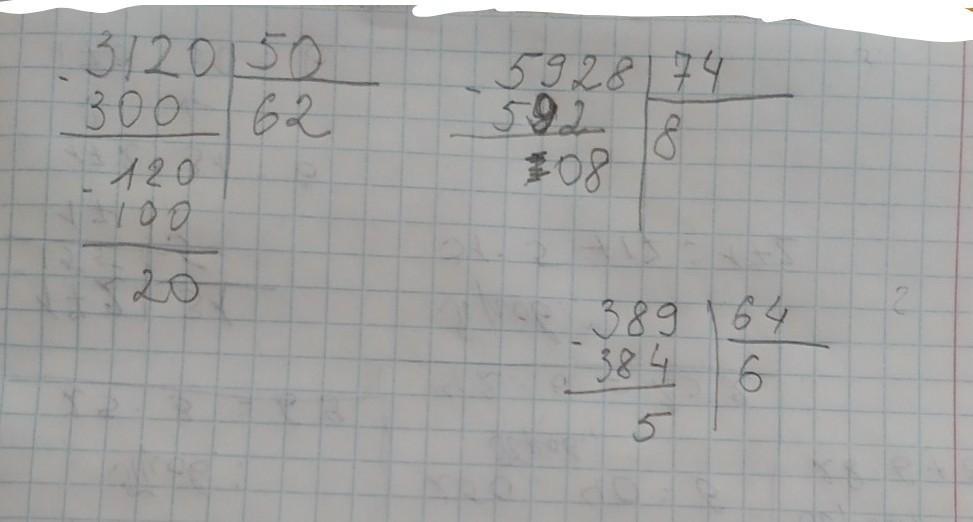 3120 50
300 62
120
100
20
5928 74
592 8
08
389 64
384 6
5